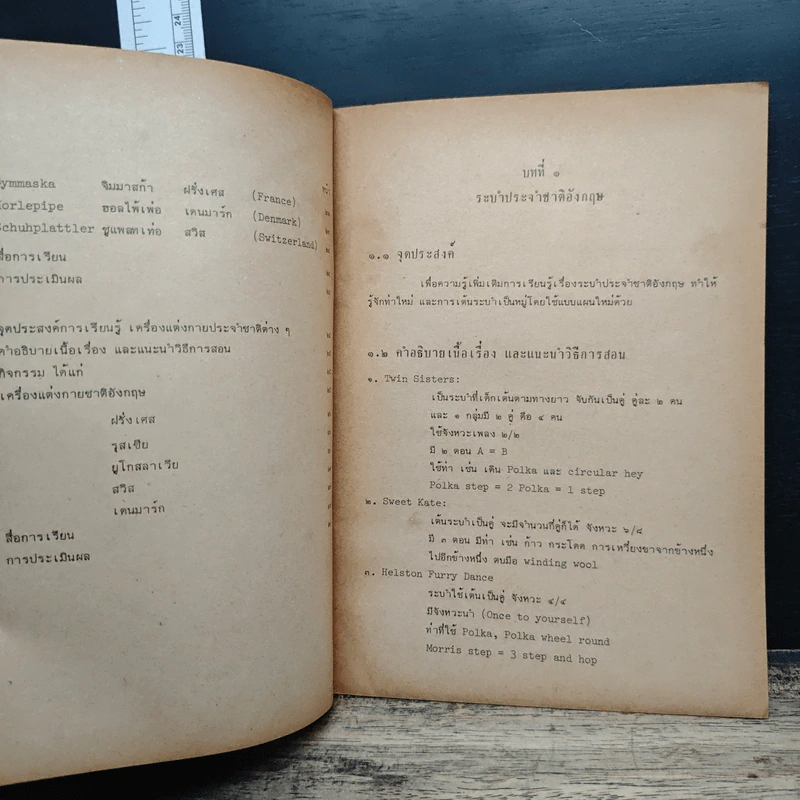 24
23
จิมมาสก้า ฝรั่งเศส (France)
ฮอลไพ้เพ่อ เดนมาร์ก (Denmark)
Schuhplattler ชูแพลทเท่อ สวิส (Switzerland)
สื่อการเรียน
การประเมินผล
จุดประสงค์การเรียนรู้ เครื่องแต่งกายประจำชาติต่าง ๆ
คำอธิบายเนื้อเรื่อง และแนะนำวิธีการสอน
กิจกรรม ได้แก่
เครื่องแต่งกายชาติอังกฤษ
ฝรั่งเศส
รุสเซีย
ยูโกสลาเวีย
สวิส
เดนมาร์ก
สื่อการเรียน
การประเมินผล
บทที่ ๑
ระบำประจำชาติอังกฤษ
๑.๑ จุดประสงค์
เพื่อความรู้เพิ่มเติมการเรียนรู้เรื่องระบำประจำชาติอังกฤษ ทำให้
รู้จักท่าใหม่ และการเต้นระบำเป็นหมู่โดยใช้แบบแผนใหม่ด้วย
๑.๒ คำอธิบายเนื้อเรื่อง และแนะนำวิธีการสอน
๑. Twin Sisters:
เป็นระบำที่เด็กเต้นตามทางยาว จับกันเป็นคู่ คู่ละ ๒ คน
และ ๑ กลุ่มมี ๒ คู่ คือ ๔ คน
ใช้จังหวะเพลง ๒/๒
มี ๒ ตอน A = B
ใช้ท่า เช่น เดิน Polka และ circular hey
Polka step = 2 Polka = 1 step
๒. Sweet Kate:
เต้นระบำเป็นคู่ จะมีจำนวนกี่คู่ก็ได้ จังหวะ ๖/๘
มี ๓ ตอน มีท่า เช่น ก้าว กระโดด การเหวี่ยงขาจากข้างหนึ่ง
ไปอีกข้างหนึ่ง ตบมือ winding wool
๓. Helston Furry Dance
ระบำใช้เต้นเป็นคู่ จังหวะ ๔/๔
มีจังหวะนำ (Once to yourself)
ท่าที่ใช้ Polka, Polka wheel round
Morris step = 3 step and hop